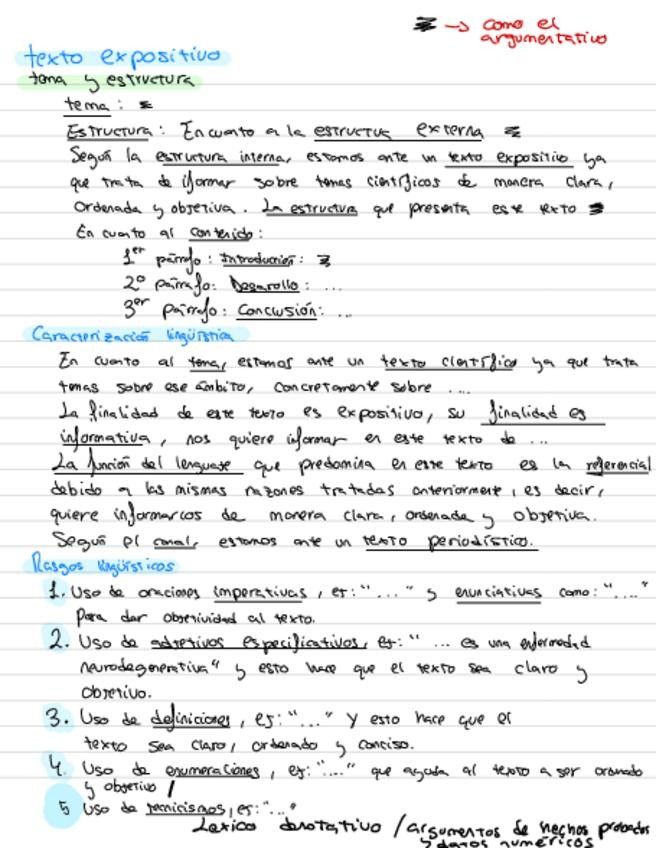 → como el
argumentativo
texto expositivo
tema y estructura
tema:
Estructura: En cuanto a la estructura externa
Según la estructura interna, estamos ante un texto expositivo ya
que trata de informar sobre temas científicos de manera clara,
ordenada y objetiva. La estructura que presenta este texto
En cuanto al contenido:
1er párrafo: Introducción:
2º párrafo: Desarollo: ...
3er párrafo: Conclusión: ...
Caracterización lingüística
En cuanto al tema, estamos ante un texto científico ya que trata
temas sobre ese ámbito, concretamente sobre ...
La finalidad de este texto es expositivo, su finalidad es
informativa, nos quiere informar en este texto de ...
La función del lenguaje que predomina en este texto es la referencial
debido a las mismas razones tratadas anteriormente, es decir,
quiere informarcos de manera clara, ordenada y objetiva.
Según el canal, estamos ante un texto periodístico.
Rasgos lingüísticos
1. Uso de oraciones imperativas, ej: "..." y enunciativas como: "...."
para dar objetividad al texto.
2. Uso de adjetivos especificativos, ej: " ... es una enfermedad
neurodegenerativa" y esto hace que el texto sea claro y
objetivo.
3. Uso de definiciones, ej: "..." y esto hace que el
texto sea claro, ordenado y conciso.
4. Uso de enumeraciones, ej: "...." que ayuda al texto a ser ordenado
y objetivo /
5 Uso de tecnicismos, ej: "..."
Lexico denotativo / argumentos de hechos probados
y datos numéricos